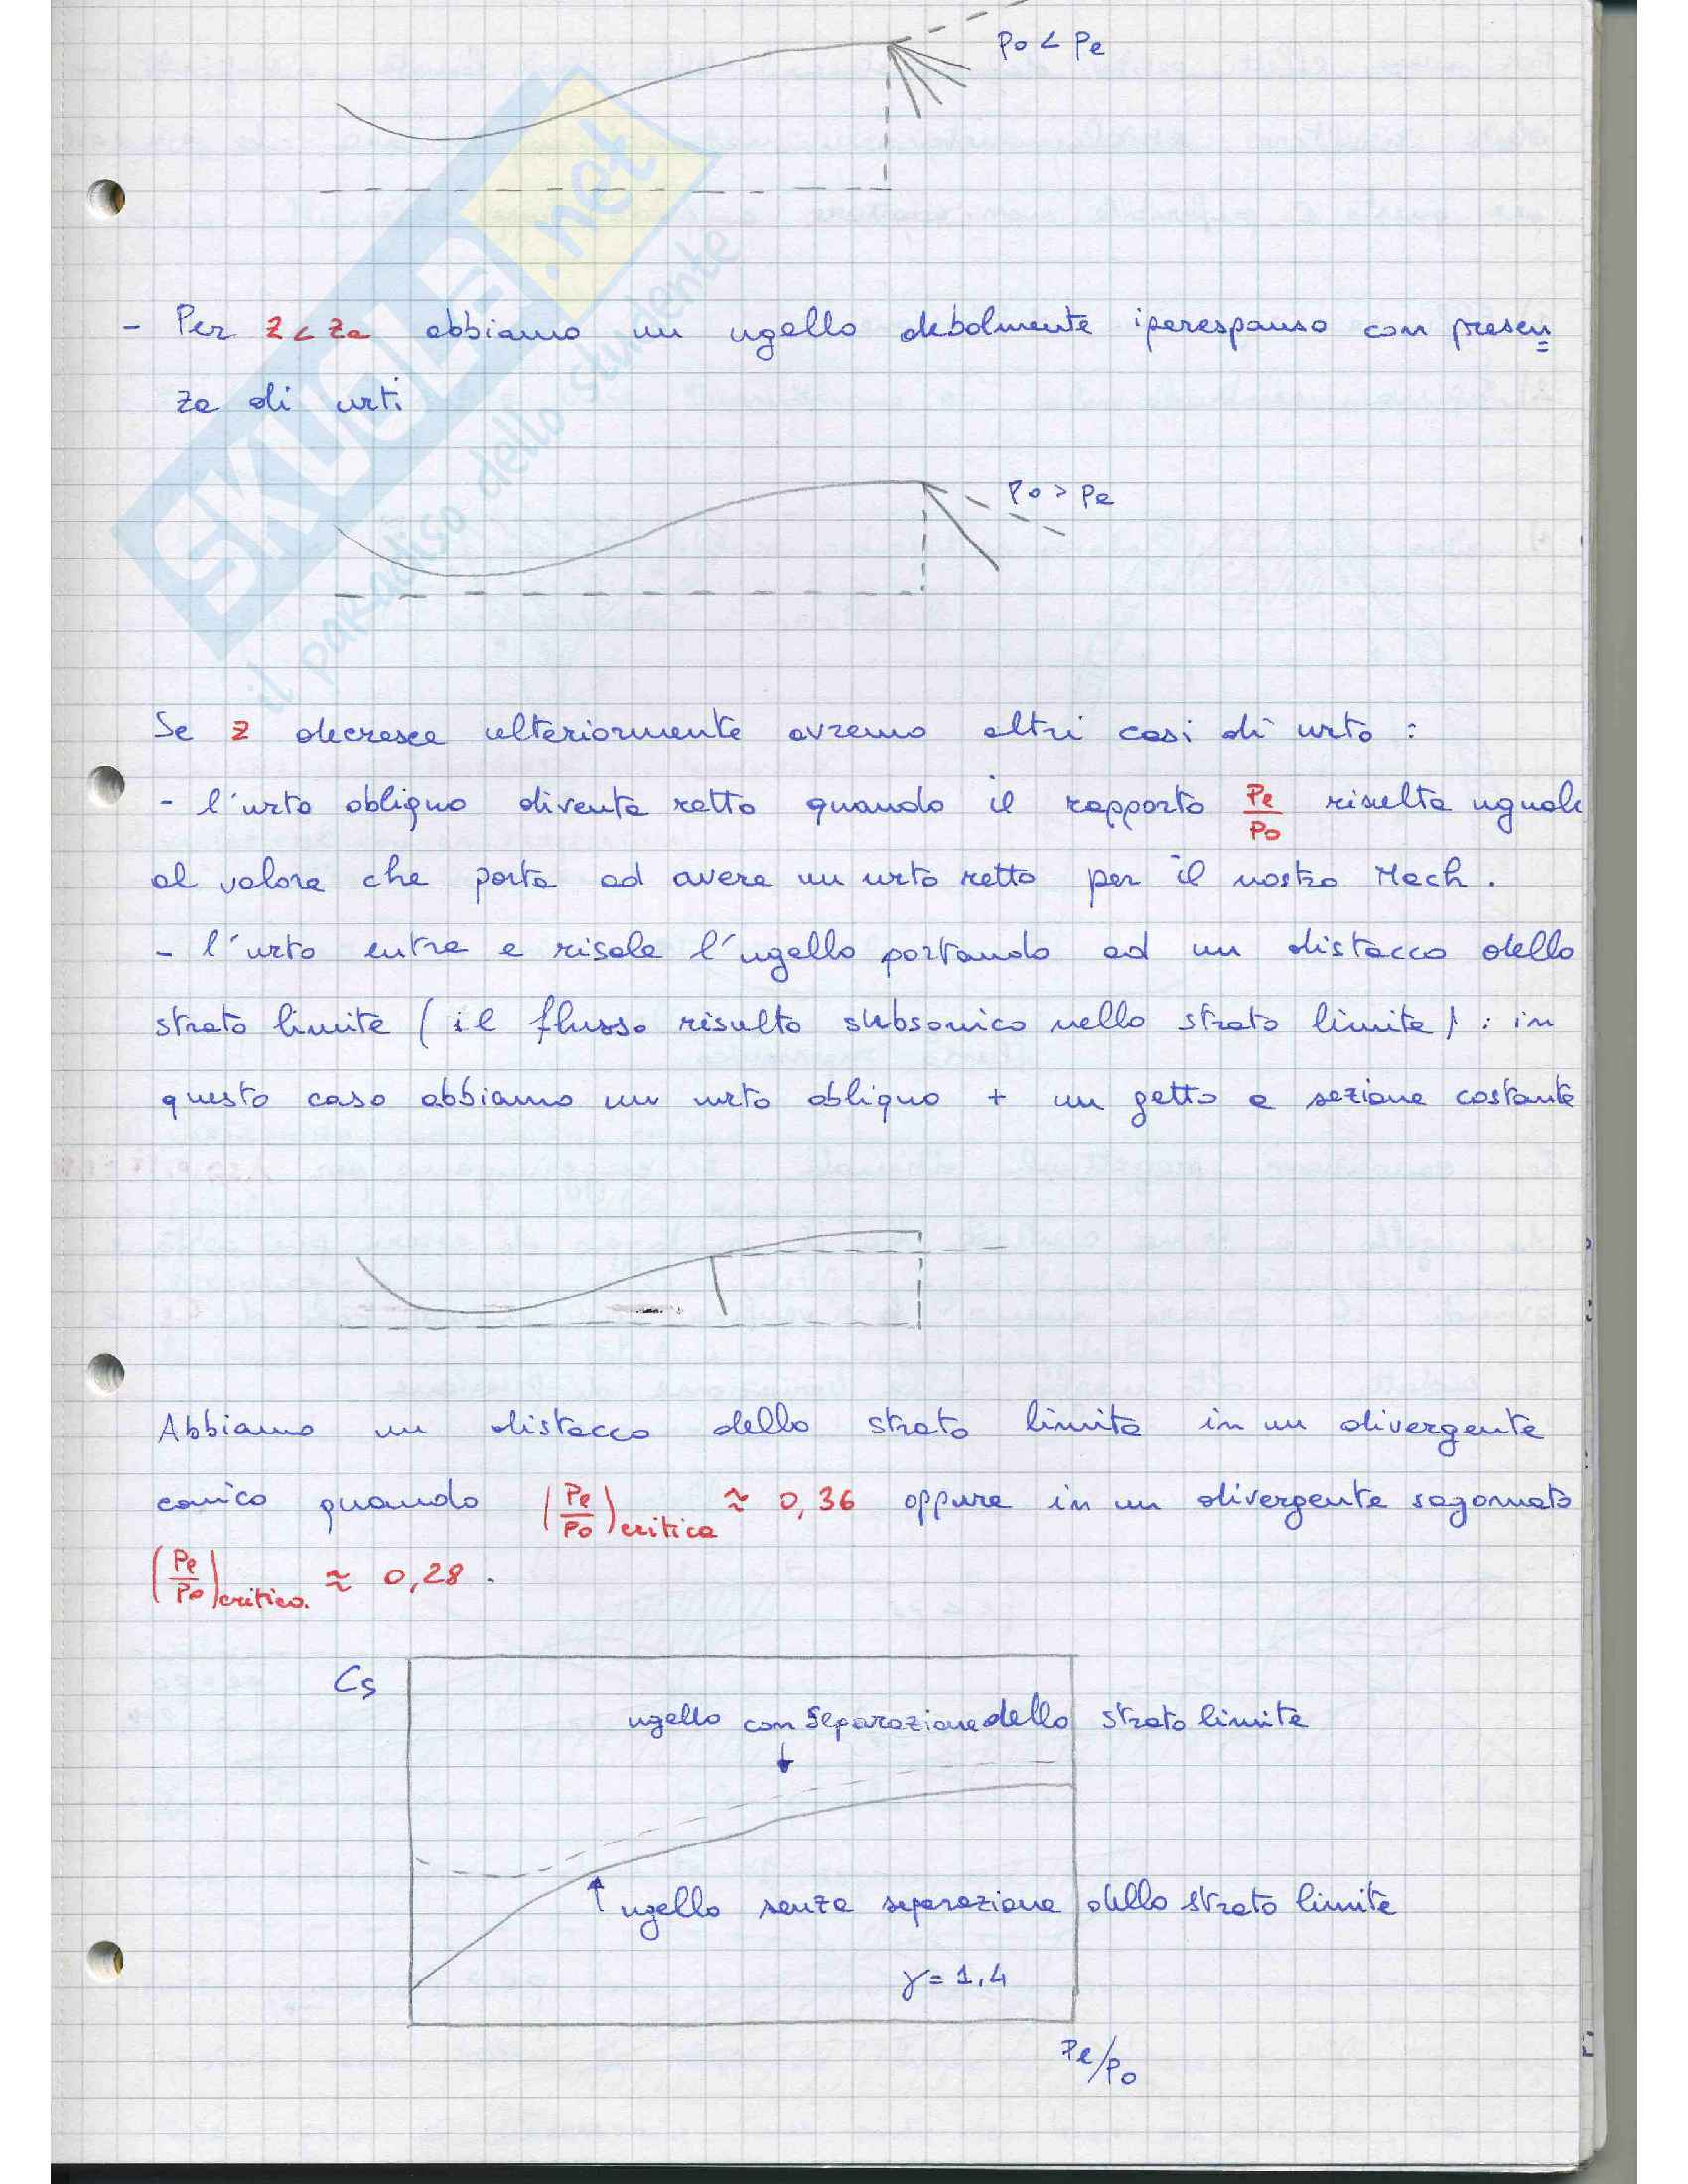 Po < Pe
- Per z < za abbiamo un ugello debolmente iperespanso con presen
za di urti
Po > Pe
Se z decresce ulteriormente avremo altri casi di urto :
- l'urto obliquo diventa retto quando il rapporto Pe/Po risulta uguale
al valore che porta ad avere un urto retto per il nostro Mach.
- l'urto entra e risale l'ugello portando ad un distacco dello
strato limite (il flusso risulta subsonico nello strato limite) : in
questo caso abbiamo un urto obliquo + un getto a sezione costante
Abbiamo un distacco dello strato limite in un divergente
conico quando (Pe/Po)critica ≈ 0,36 oppure in un divergente sagomato
(Pe/Po)critico. ≈ 0,28 .
Cs
ugello con separazione dello strato limite
ugello senza separazione dello strato limite
γ = 1,4
Pe/Po
SKUOLA.net
il paradiso dello studente